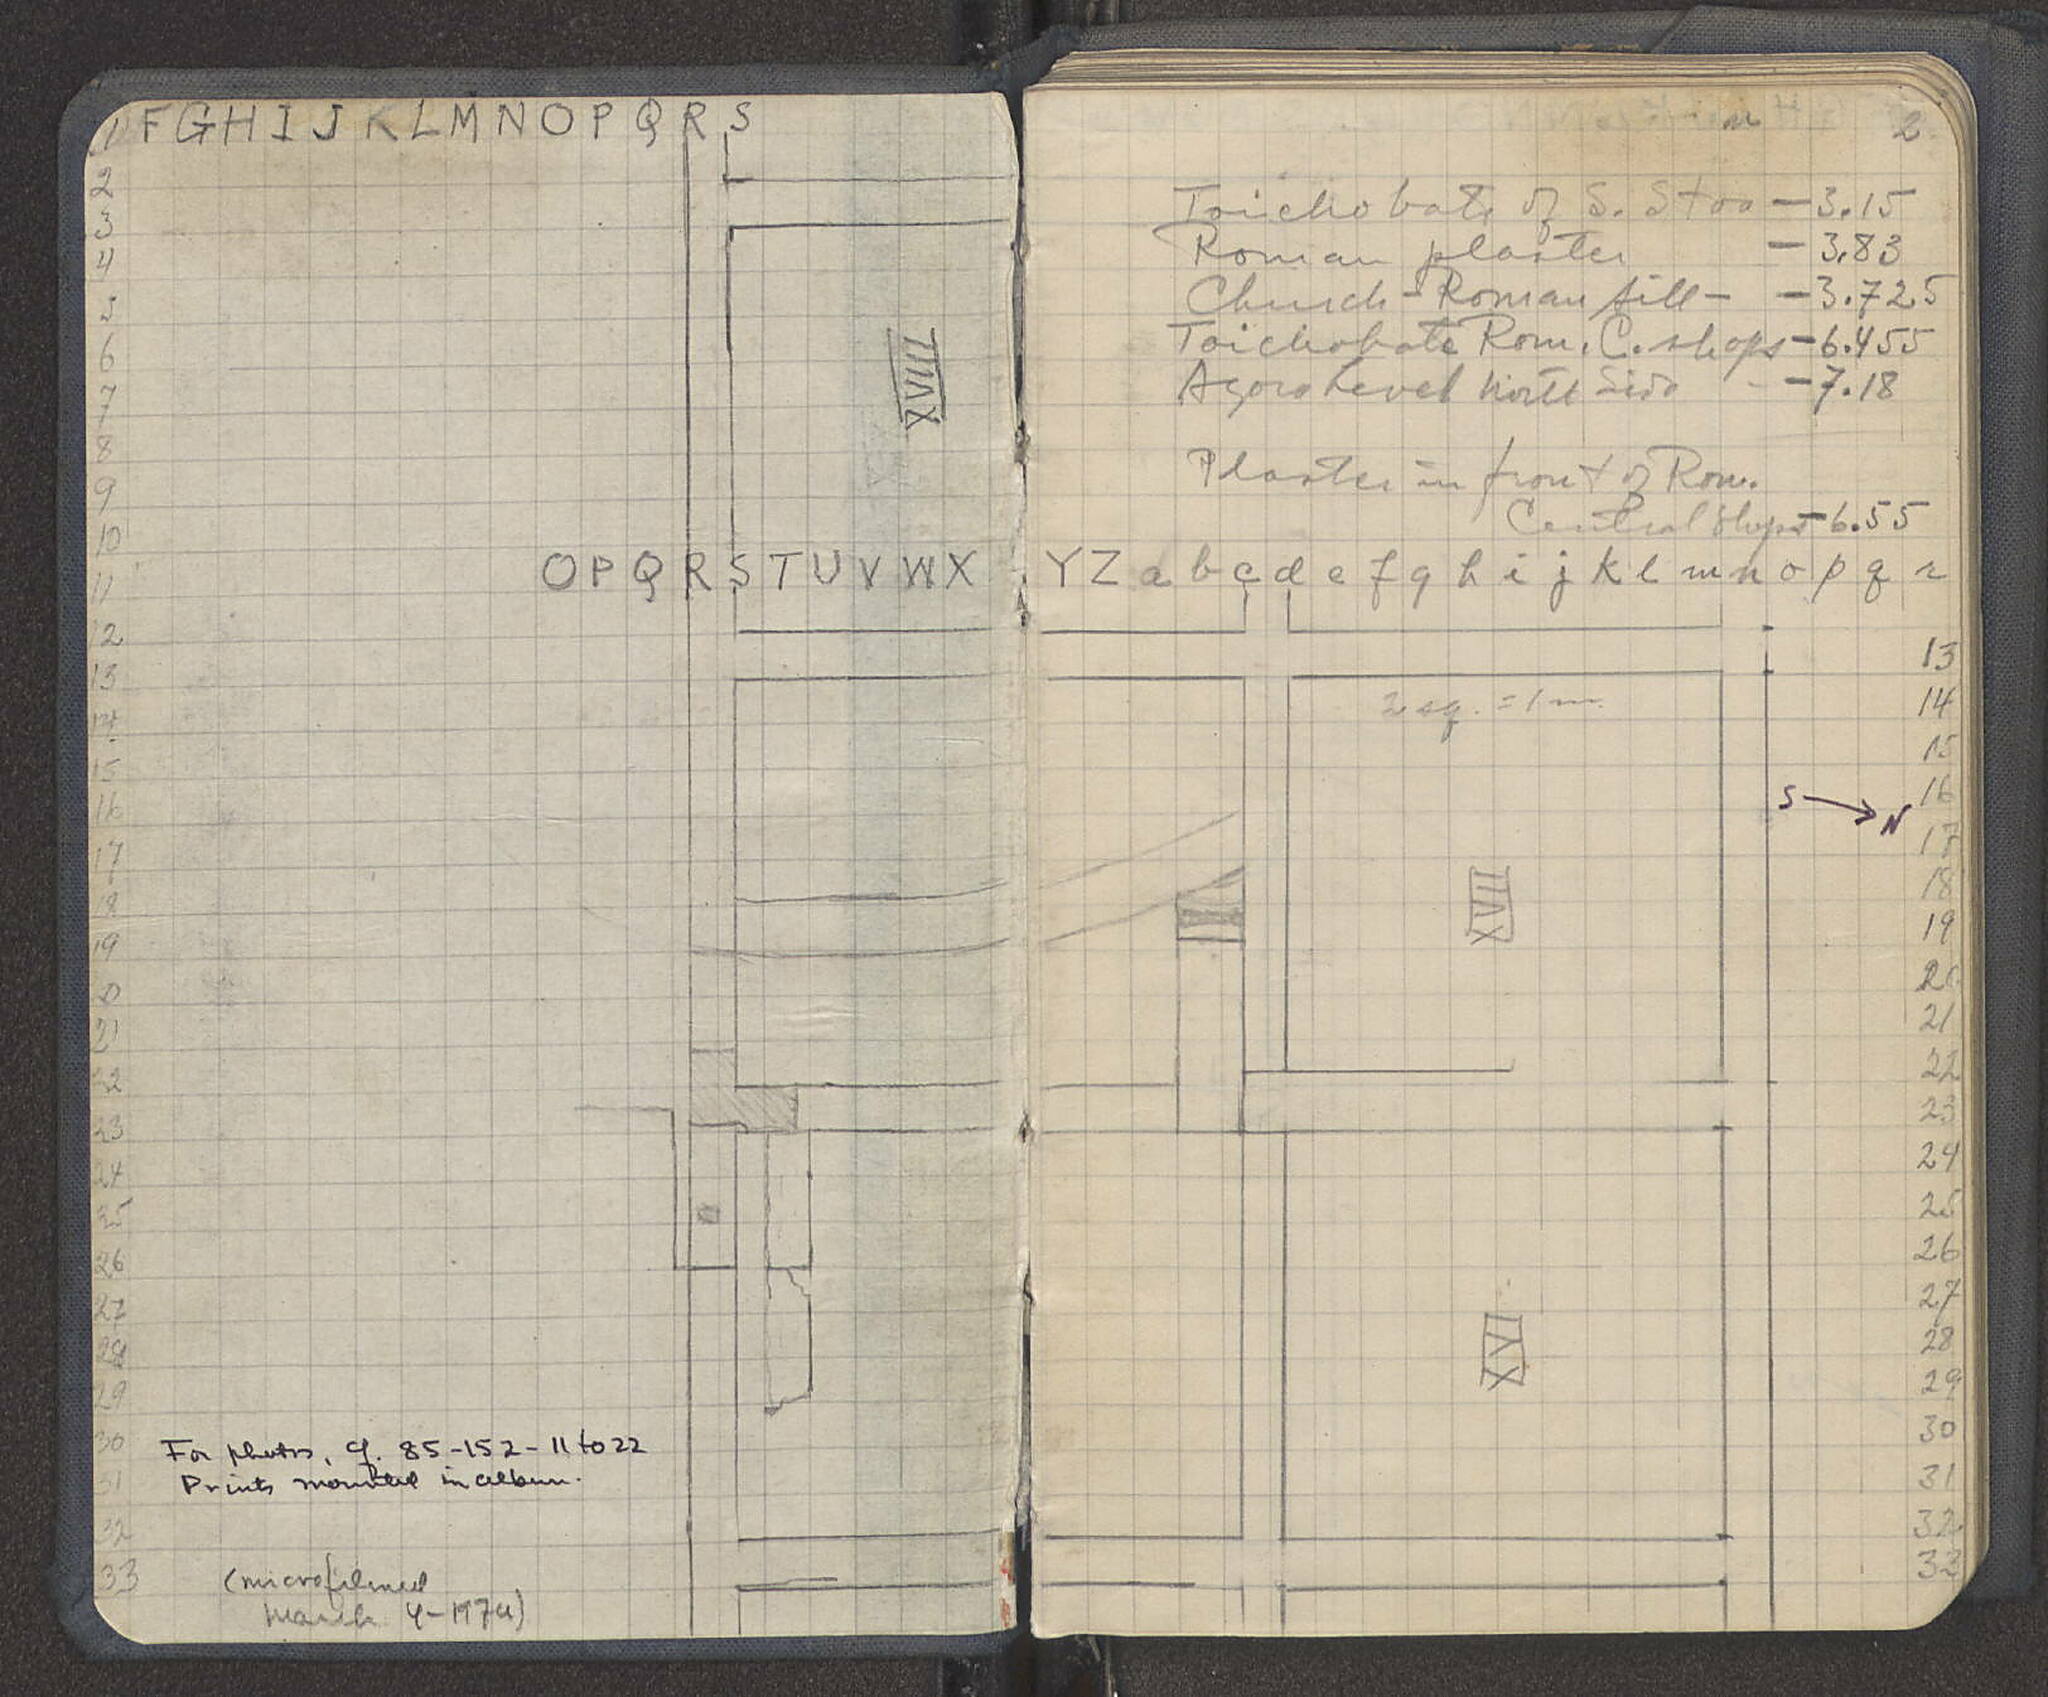 F G H I J K L M N O P Q R S
1
2
3
4
5
6
7
8
9
10
11
12
13
14
15
16
17
18
19
21
23
24
26
27
28
29
30
31
32
33
XVIII
O P Q R S T U V W X
For photos, cf. 85-152-11 to 22
Prints mounted in album.
(microfilmed
March 4-1974)
2
Toichobate of S. Stoa - 3.15
Roman plaster - 3.83
Church-Roman fill - - 3.725
Toichobate Rom. C. shops - 6.455
Agora Level North Side - - 7.18
Plaster in front of Rom.
Central Shops - 6.55
Y Z a b c d e f g h i j k l m n o p q r
2 sq. = 1 m.
S → N
XVII
XVI
13
14
15
16
17
18
19
20
21
22
23
24
25
26
27
28
29
30
31
32
33